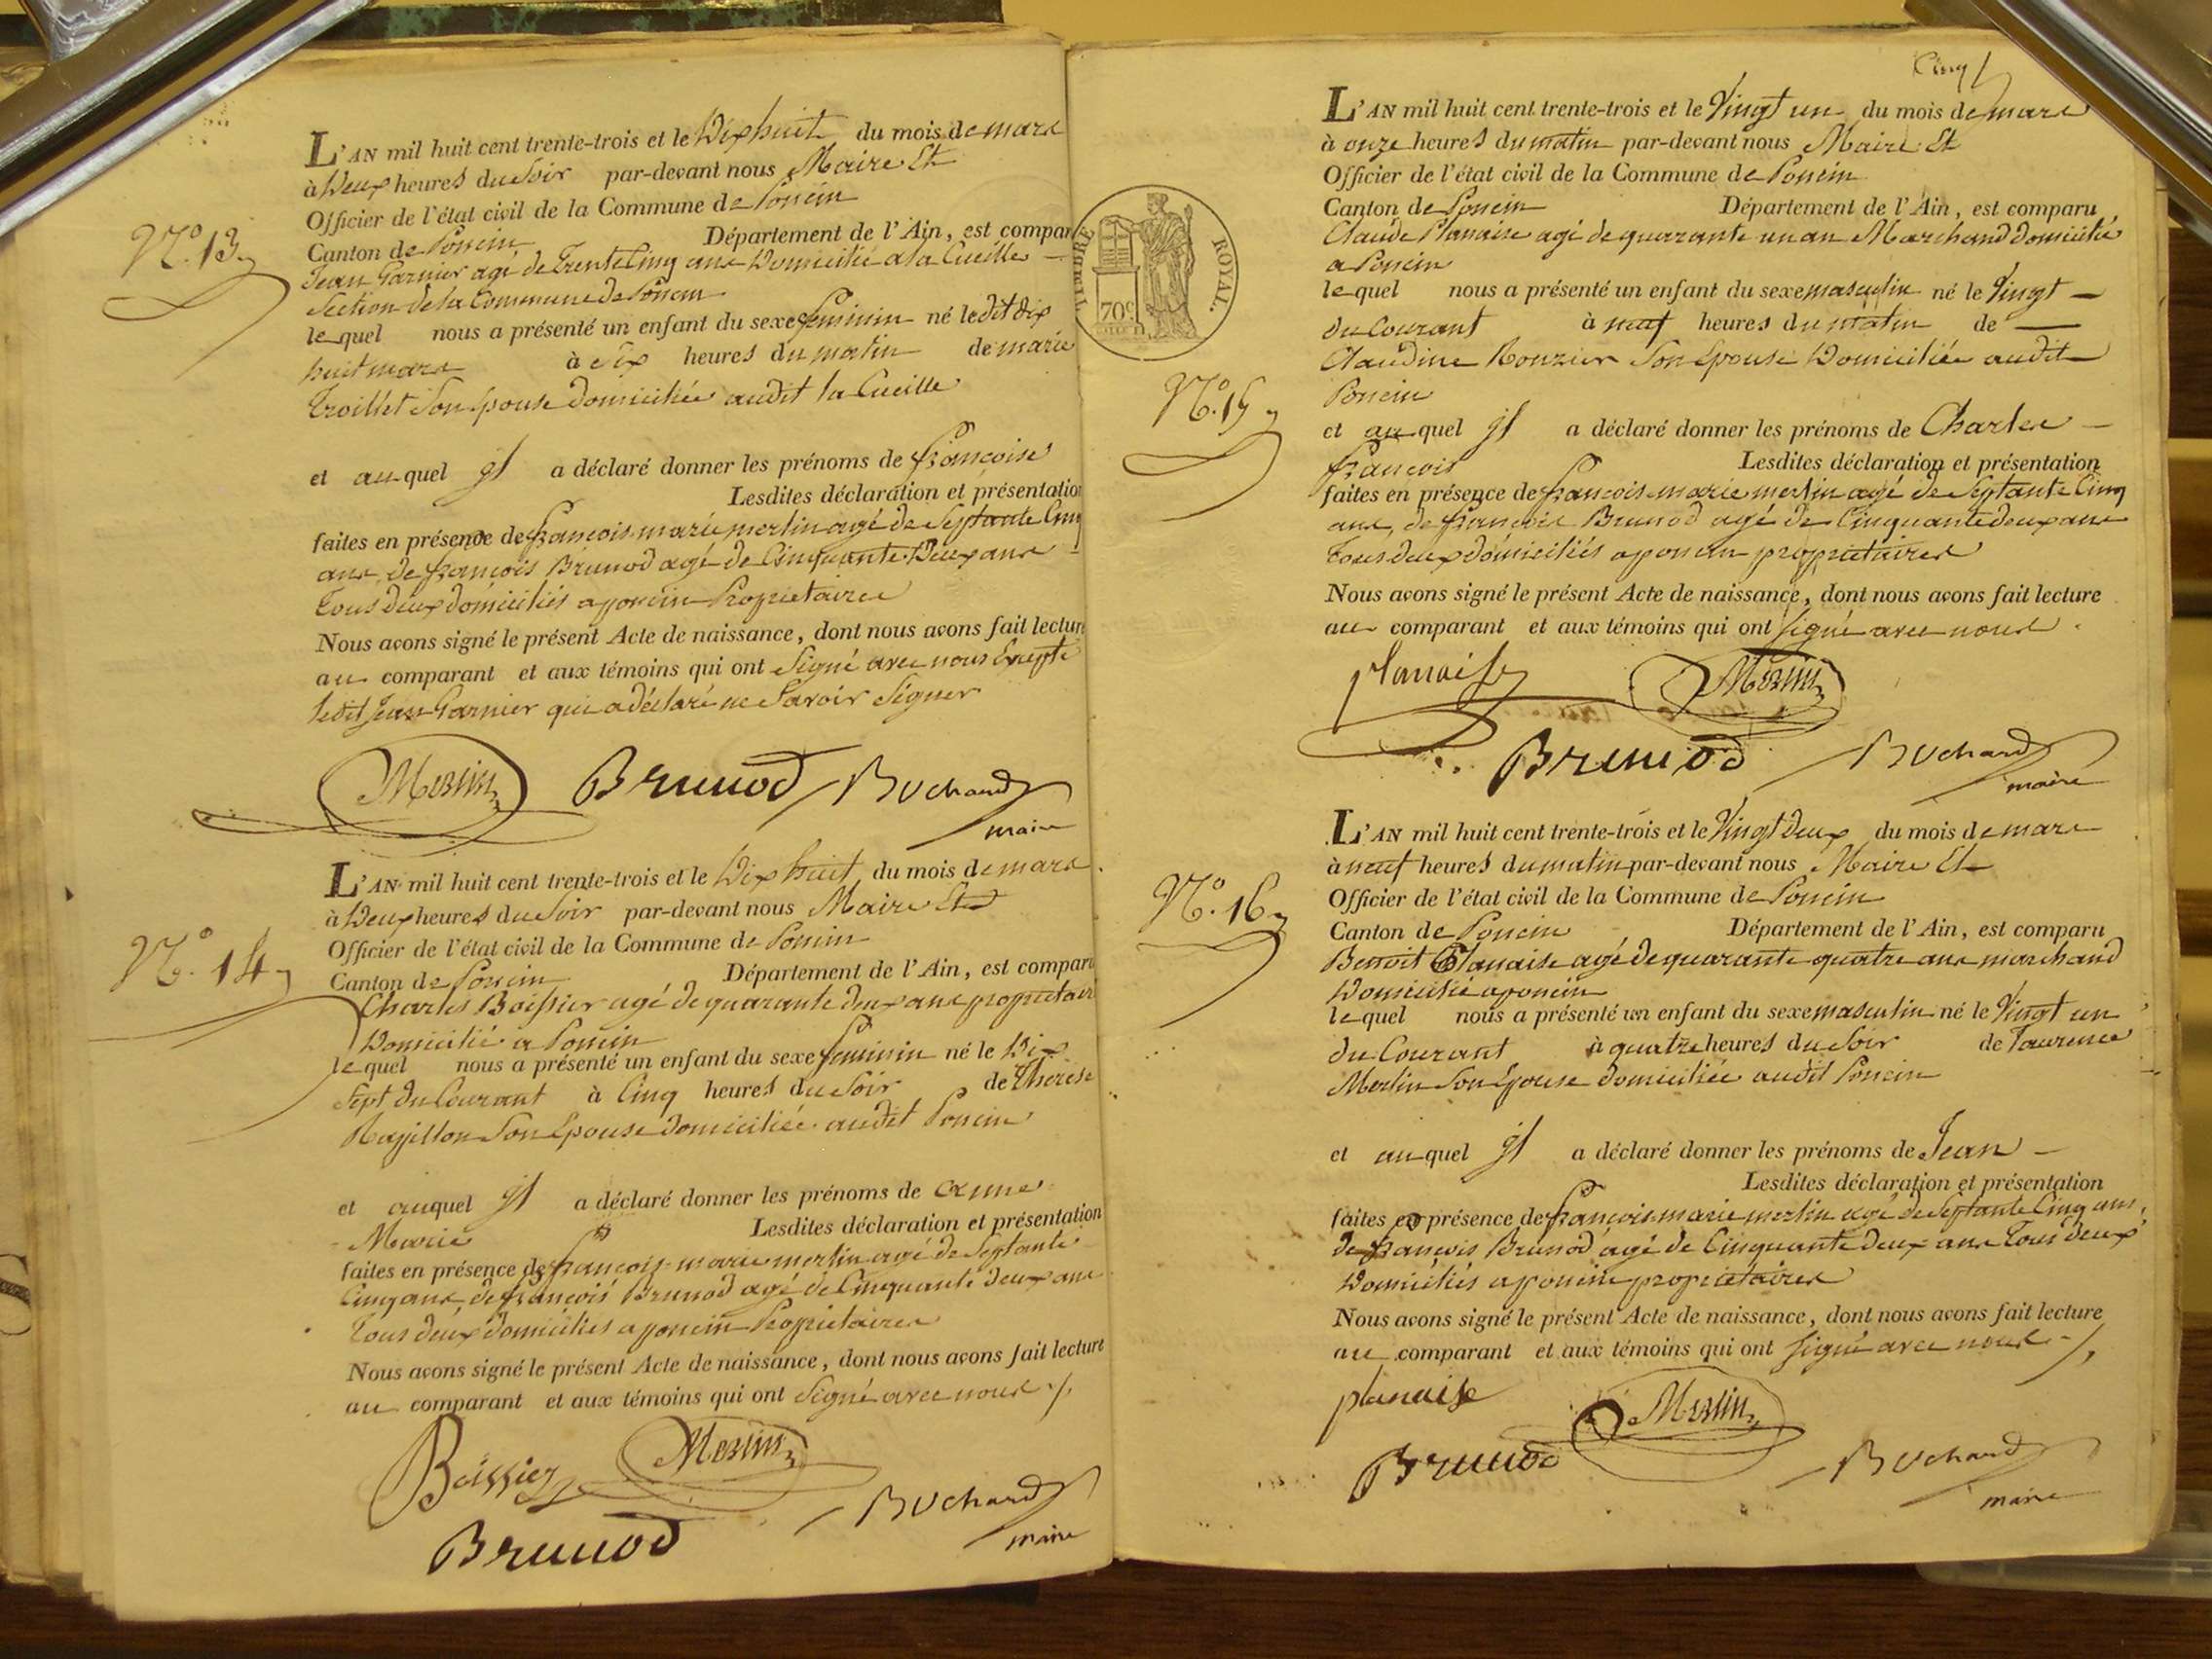 N.º 13
L'AN mil huit cent trente-trois et le Dix huit du mois de mars
à Deux heures du Soir par-devant nous Maire Et
Officier de l'état civil de la Commune de Poncin
Canton de Poncin Département de l'Ain, est compar
Jean Garnier agé de Trente Cinq ans Domicilié a la Cueille
Section de la Commune de Poncin
lequel nous a présenté un enfant du sexe feminin né le dit dix
huit mars à Six heures du matin de marie
Troillet Son Epouse domiciliée audit la Cueille
et auquel il a déclaré donner les prénoms de françoise
Lesdites déclaration et présentation
faites en présence de françois marie merlin agé de Septante Cinq
ans, de françois Brunod agé de Cinquante Deux ans
Tous deux domiciliés a poncin Propriétaires
Nous avons signé le présent Acte de naissance, dont nous avons fait lecture
au comparant et aux témoins qui ont Signé avec nous Excepté
ledit Jean Garnier qui a déclaré ne Savoir Signer
Merlin Brunod Buchard
maire
N.º 14
L'AN mil huit cent trente-trois et le Dix huit du mois de mars
à Deux heures du Soir par-devant nous Maire Et
Officier de l'état civil de la Commune de Poncin
Canton de Poncin Département de l'Ain, est comparu
Charles Boissier agé de quarante deux ans propriétaire
Domicilié a Poncin
lequel nous a présenté un enfant du sexe feminin né le Dix
Sept du Courant à Cinq heures du Soir de Therese
Rapillon Son Epouse domiciliée audit Poncin
et auquel il a déclaré donner les prénoms de anne
Marie Lesdites déclaration et présentation
faites en présence de françois marie merlin agé de Septante
Cinq ans, de françois Brunod agé de Cinquante deux ans
Tous deux domiciliés a poncin Propriétaires
Nous avons signé le présent Acte de naissance, dont nous avons fait lecture
au comparant et aux témoins qui ont Signé avec nous ./.
Boissier Merlin
Brunod Buchard
maire
Cinq
TIMBRE ROYAL.
70c
N.º 15
L'AN mil huit cent trente-trois et le Vingt un du mois de mars
à onze heures du matin par-devant nous Maire Et
Officier de l'état civil de la Commune de Poncin
Canton de Poncin Département de l'Ain, est comparu
Claude Planaise agé de quarante un an Marchand domicilié
a Poncin
lequel nous a présenté un enfant du sexe masculin né le Vingt
du Courant à neuf heures du matin de
Claudine Rouzier Son Epouse Domiciliée audit
Poncin
et auquel il a déclaré donner les prénoms de Charles
françois Lesdites déclaration et présentation
faites en présence de françois marie merlin agé de Septante Cinq
ans, de françois Brunod agé de Cinquante deux ans
Tous deux domiciliés a poncin propriétaires
Nous avons signé le présent Acte de naissance, dont nous avons fait lecture
au comparant et aux témoins qui ont signé avec nous.
planaise Merlin
Brunod Buchard
maire
N.º 16
L'AN mil huit cent trente-trois et le Vingt Deux du mois de mars
à neuf heures du matin par-devant nous Maire Et
Officier de l'état civil de la Commune de Poncin
Canton de Poncin Département de l'Ain, est comparu
Benoit Planaise agé de quarante quatre ans marchand
Domicilié a poncin
lequel nous a présenté un enfant du sexe masculin né le Vingt un
du Courant à quatre heures du Soir de Laurence
Merlin Son Epouse domiciliée audit Poncin
et auquel il a déclaré donner les prénoms de Jean
Lesdites déclaration et présentation
faites en présence de françois marie merlin agé de Septante Cinq ans,
de françois Brunod agé de Cinquante deux ans Tous deux
Domiciliés a poncin propriétaires
Nous avons signé le présent Acte de naissance, dont nous avons fait lecture
au comparant et aux témoins qui ont signé avec nous
planaise Merlin
Brunod Buchard
maire